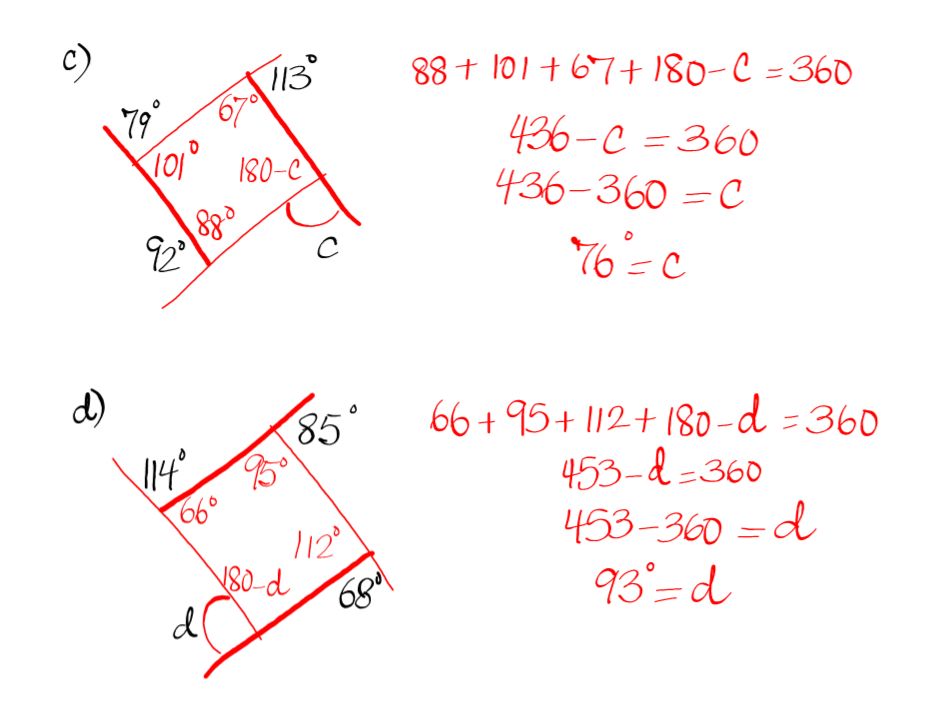 c)
113°
79°
67°
101°
180-c
88°
92°
c
88 + 101 + 67 + 180 - c = 360
436 - c = 360
436 - 360 = c
76° = c
d)
85°
114°
95°
66°
112°
180-d
68°
d
66 + 95 + 112 + 180 - d = 360
453 - d = 360
453 - 360 = d
93° = d